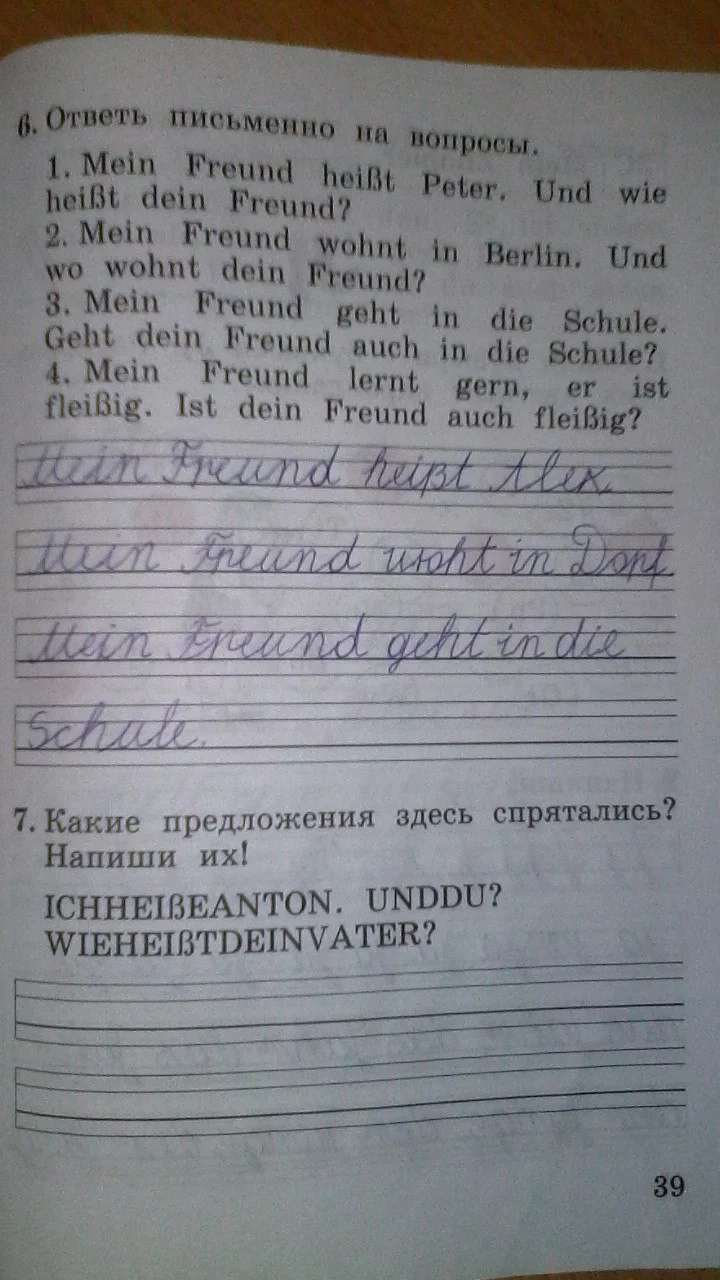 6. Ответь письменно на вопросы.
1. Mein Freund heißt Peter. Und wie
heißt dein Freund?
2. Mein Freund wohnt in Berlin. Und
wo wohnt dein Freund?
3. Mein Freund geht in die Schule.
Geht dein Freund auch in die Schule?
4. Mein Freund lernt gern, er ist
fleißig. Ist dein Freund auch fleißig?
Mein Freund heißt Alex
Mein Freund woht in Dorf
Mein Freund geht in die
Schule.
7. Какие предложения здесь спрятались?
Напиши их!
ICHHEIßEANTON. UNDDU?
WIEHEIßTDEINVATER?
39